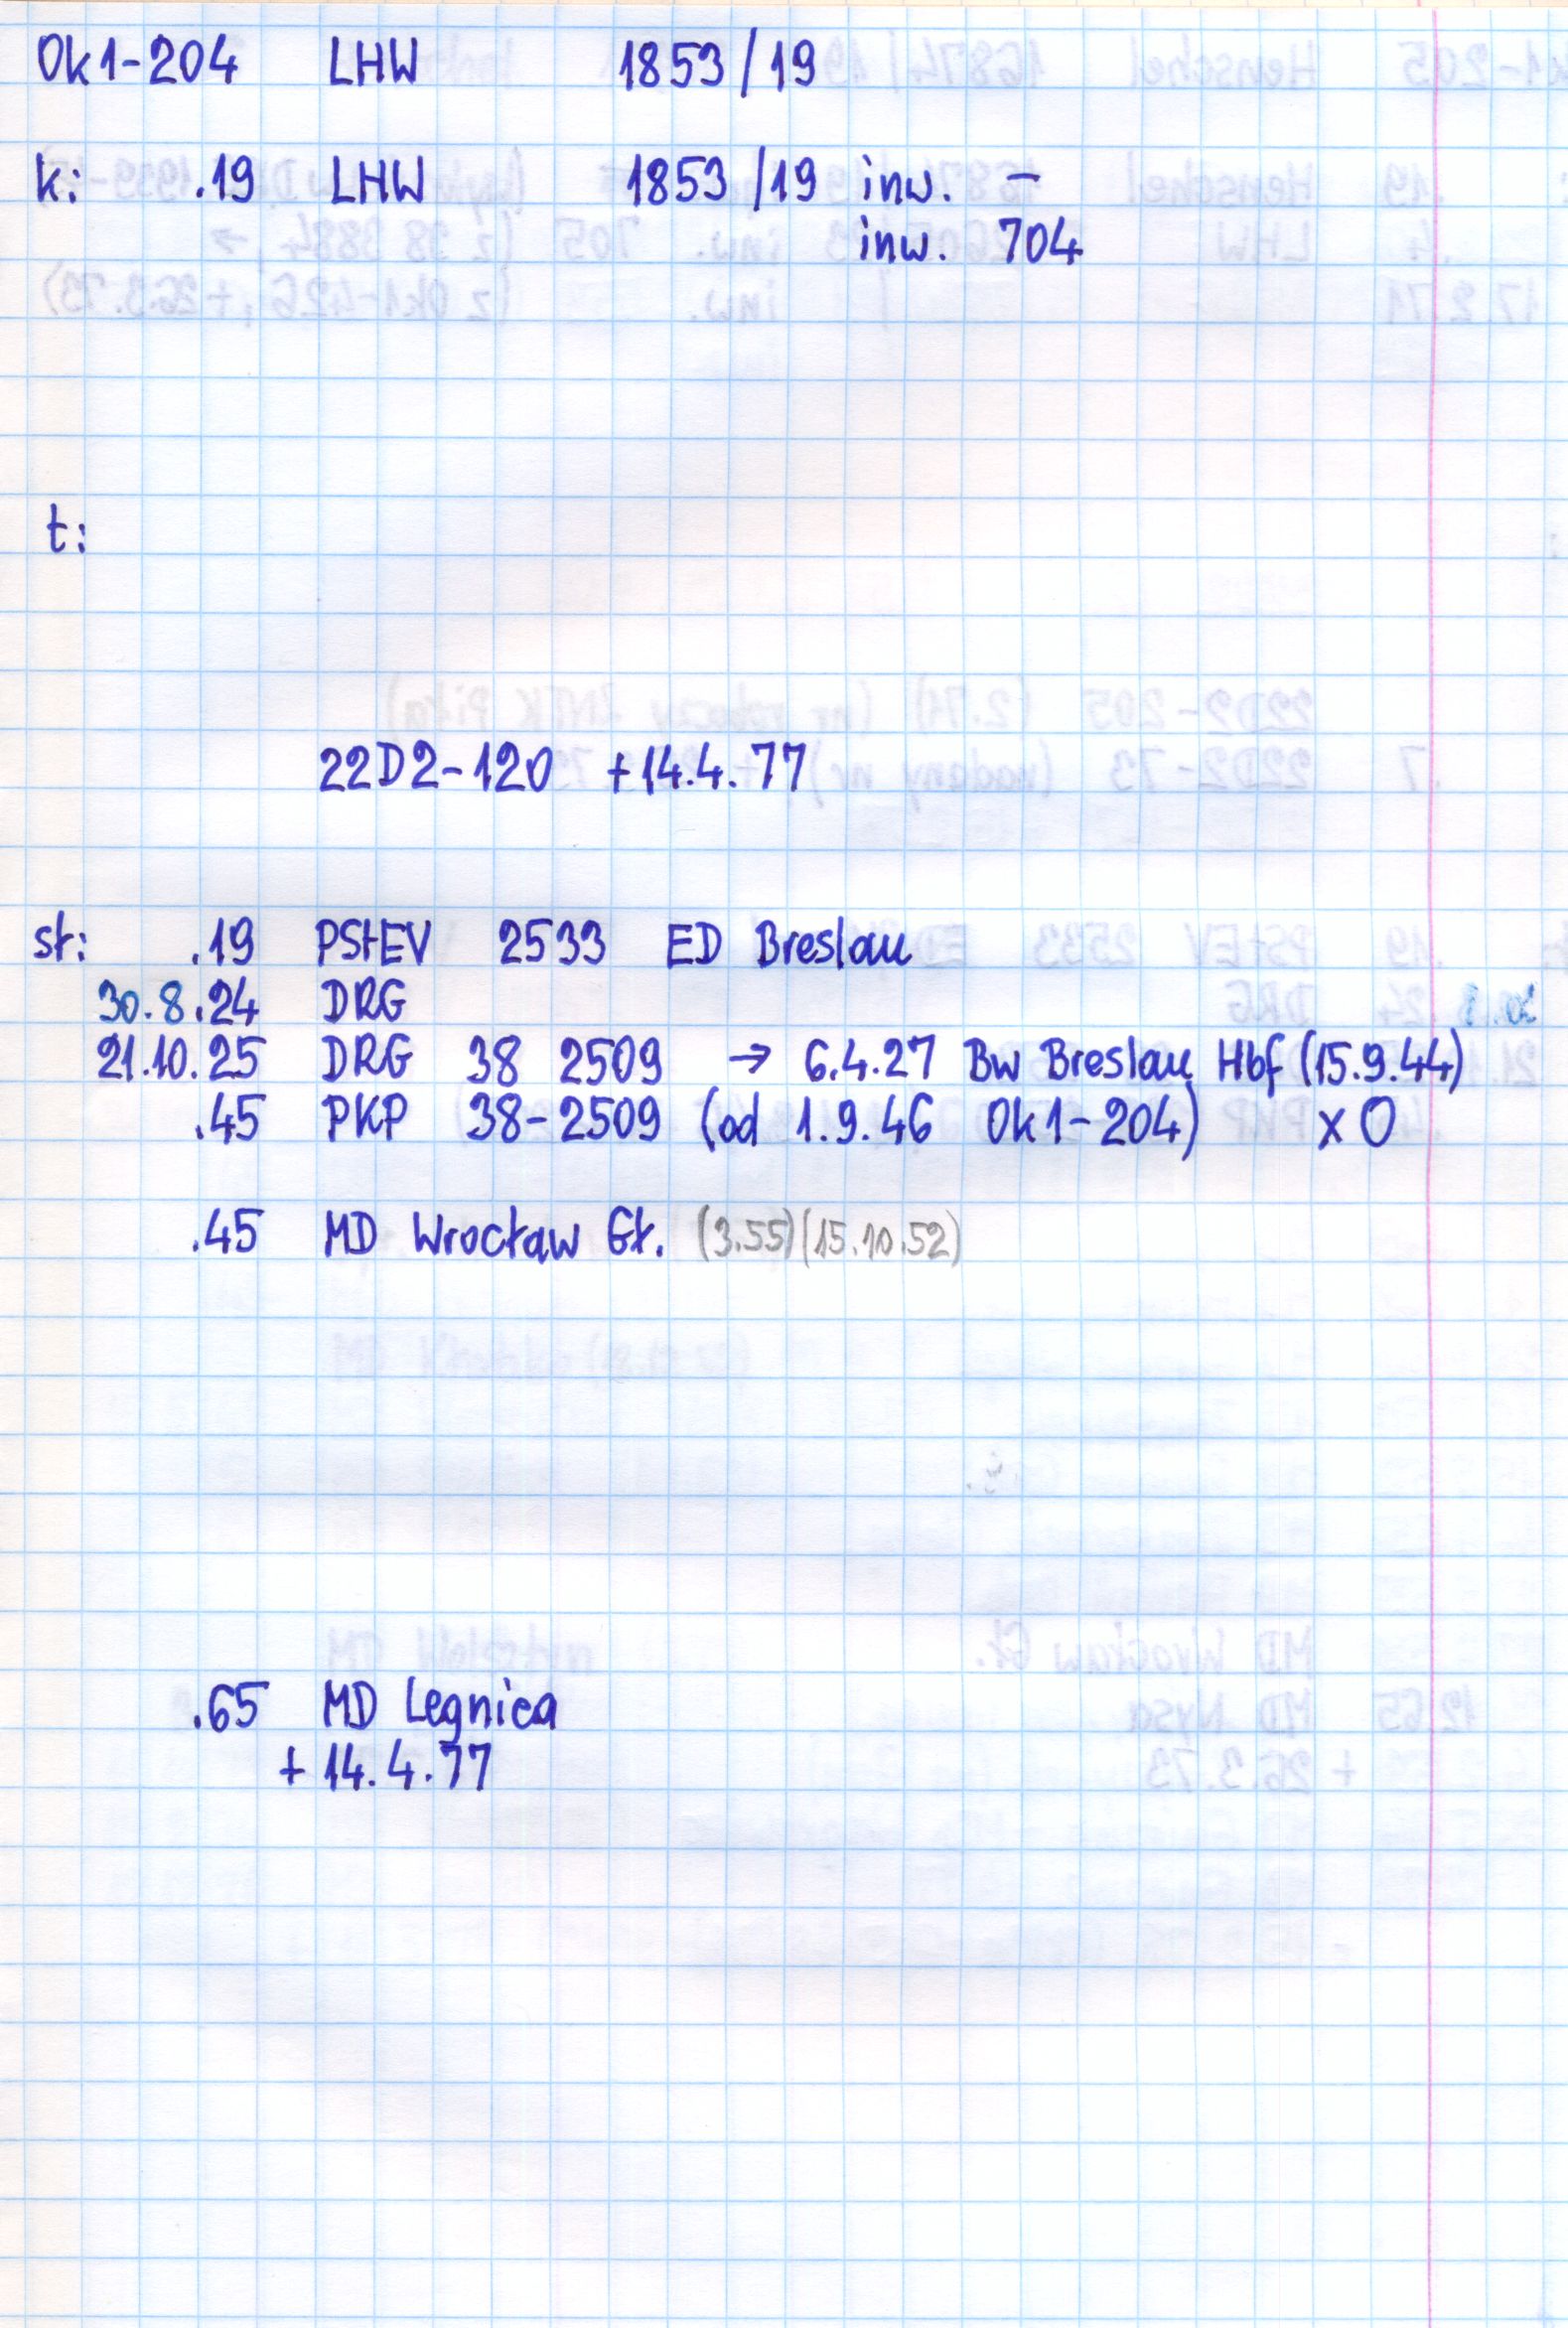 Ok1-204 LHW 1853/19
k: .19 LHW 1853/19 inw. -
inw. 704
t:
22D2-120 +14.4.77
st: .19 PStEV 2533 ED Breslau
30.8.24 DRG
21.10.25 DRG 38 2509 → 6.4.27 Bw Breslau Hbf (15.9.44)
.45 PKP 38-2509 (od 1.9.46 Ok1-204) x O
.45 MD Wrocław Gł. (3.55) (15.10.52)
.65 MD Legnica
+ 14.4.77